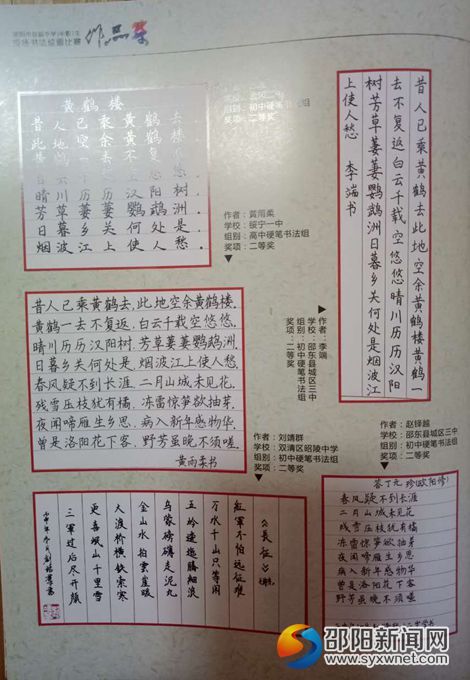 现场书法绘画比赛
作品集
黄鹤楼
昔人已乘黄鹤去
此地空余黄鹤楼
晴川历历汉阳树
芳草萋萋鹦鹉洲
日暮乡关何处是
烟波江上使人愁
组别：初中硬笔书法组
奖项：二等奖
作者：黄雨柔
学校：绥宁一中
组别：高中硬笔书法组
奖项：二等奖
昔人已乘黄鹤去此地空余黄鹤楼黄鹤一
去不复返白云千载空悠悠晴川历历汉阳
树芳草萋萋鹦鹉洲日暮乡关何处是烟波江
上使人愁 李端书
作者：李端
学校：邵东县城区三中
组别：初中硬笔书法组
奖项：二等奖
昔人已乘黄鹤去,此地空余黄鹤楼.
黄鹤一去不复返,白云千载空悠悠.
晴川历历汉阳树,芳草萋萋鹦鹉洲.
日暮乡关何处是,烟波江上使人愁.
春风疑不到长涯,二月山城未见花.
残雪压枝犹有橘,冻雷惊笋欲抽芽.
夜闻啼雁生乡思,病入新年感物华.
曾是洛阳花下客,野芳虽晚不须嗟.
黄雨柔书
作者：刘靖群
学校：双清区昭陵中学
组别：初中硬笔书法组
奖项：二等奖
作者：赵铎越
学校：邵东县城区三中
组别：初中硬笔书法组
奖项：二等奖
《长征》
红军不怕远征难
万水千山只等闲
五岭逶迤腾细浪
乌蒙磅礴走泥丸
金山水拍云崖暖
大渡桥横铁索寒
更喜岷山千里雪
三军过后尽开颜
答丁元珍(欧阳修)
春风疑不到长涯
二月山城未见花
残雪压枝犹有橘
冻雷惊笋欲抽芽
夜闻啼雁生乡思
病入新年感物华
曾是洛阳花下客
野芳虽晚不须嗟
邵阳新闻网
www.syxwnet.com